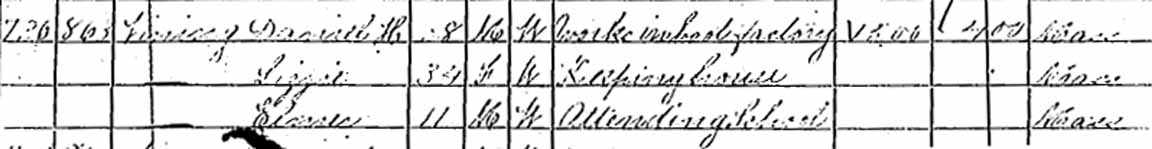 736 863 Daniel H 38 M W Works in boot factory 1500 400 Mass
— Lizzie 34 F W Keeping house Mass
— Elmer 11 M W Attending School Mass